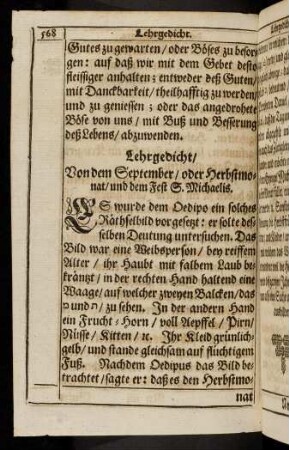 568
Lehrgedicht.
Gutes zu gewarten/ oder Böses zu besor-
gen: auf daß wir mit dem Gebet desto
fleissiger anhalten; entweder deß Guten/
mit Danckbarkeit/ theilhafftig zu werden/
und zu geniessen; oder das angedrohete
Böse von uns/ mit Buß und Besserung
deß Lebens/ abzuwenden.
Lehrgedicht/
Von dem September/ oder Herbstmo-
nat/ und dem Fest S. Michaelis.
ES wurde dem Oedipo ein solches
Räthselbild vorgesetzt: er solte des-
selben Deutung untersuchen. Das
Bild war eine Weibsperson/ bey reiffem
Alter/ ihr Haubt mit falbem Laub be-
kräntzt/ in der rechten Hand haltend eine
Waage/ auf welcher zweyen Balcken/ das
und/ zu sehen. In der andern Hand
ein Frucht-Horn/ voll Aepffel/ Pirn/
Nüsse/ Kitten/ ꝛc. Ihr Kleid grünlich-
gelb/ und stande gleichsam auf flüchtigem
Fuß. Nachdem Oedipus das Bild be-
trachtet/ sagte er: daß es den Herbstmo-
nat